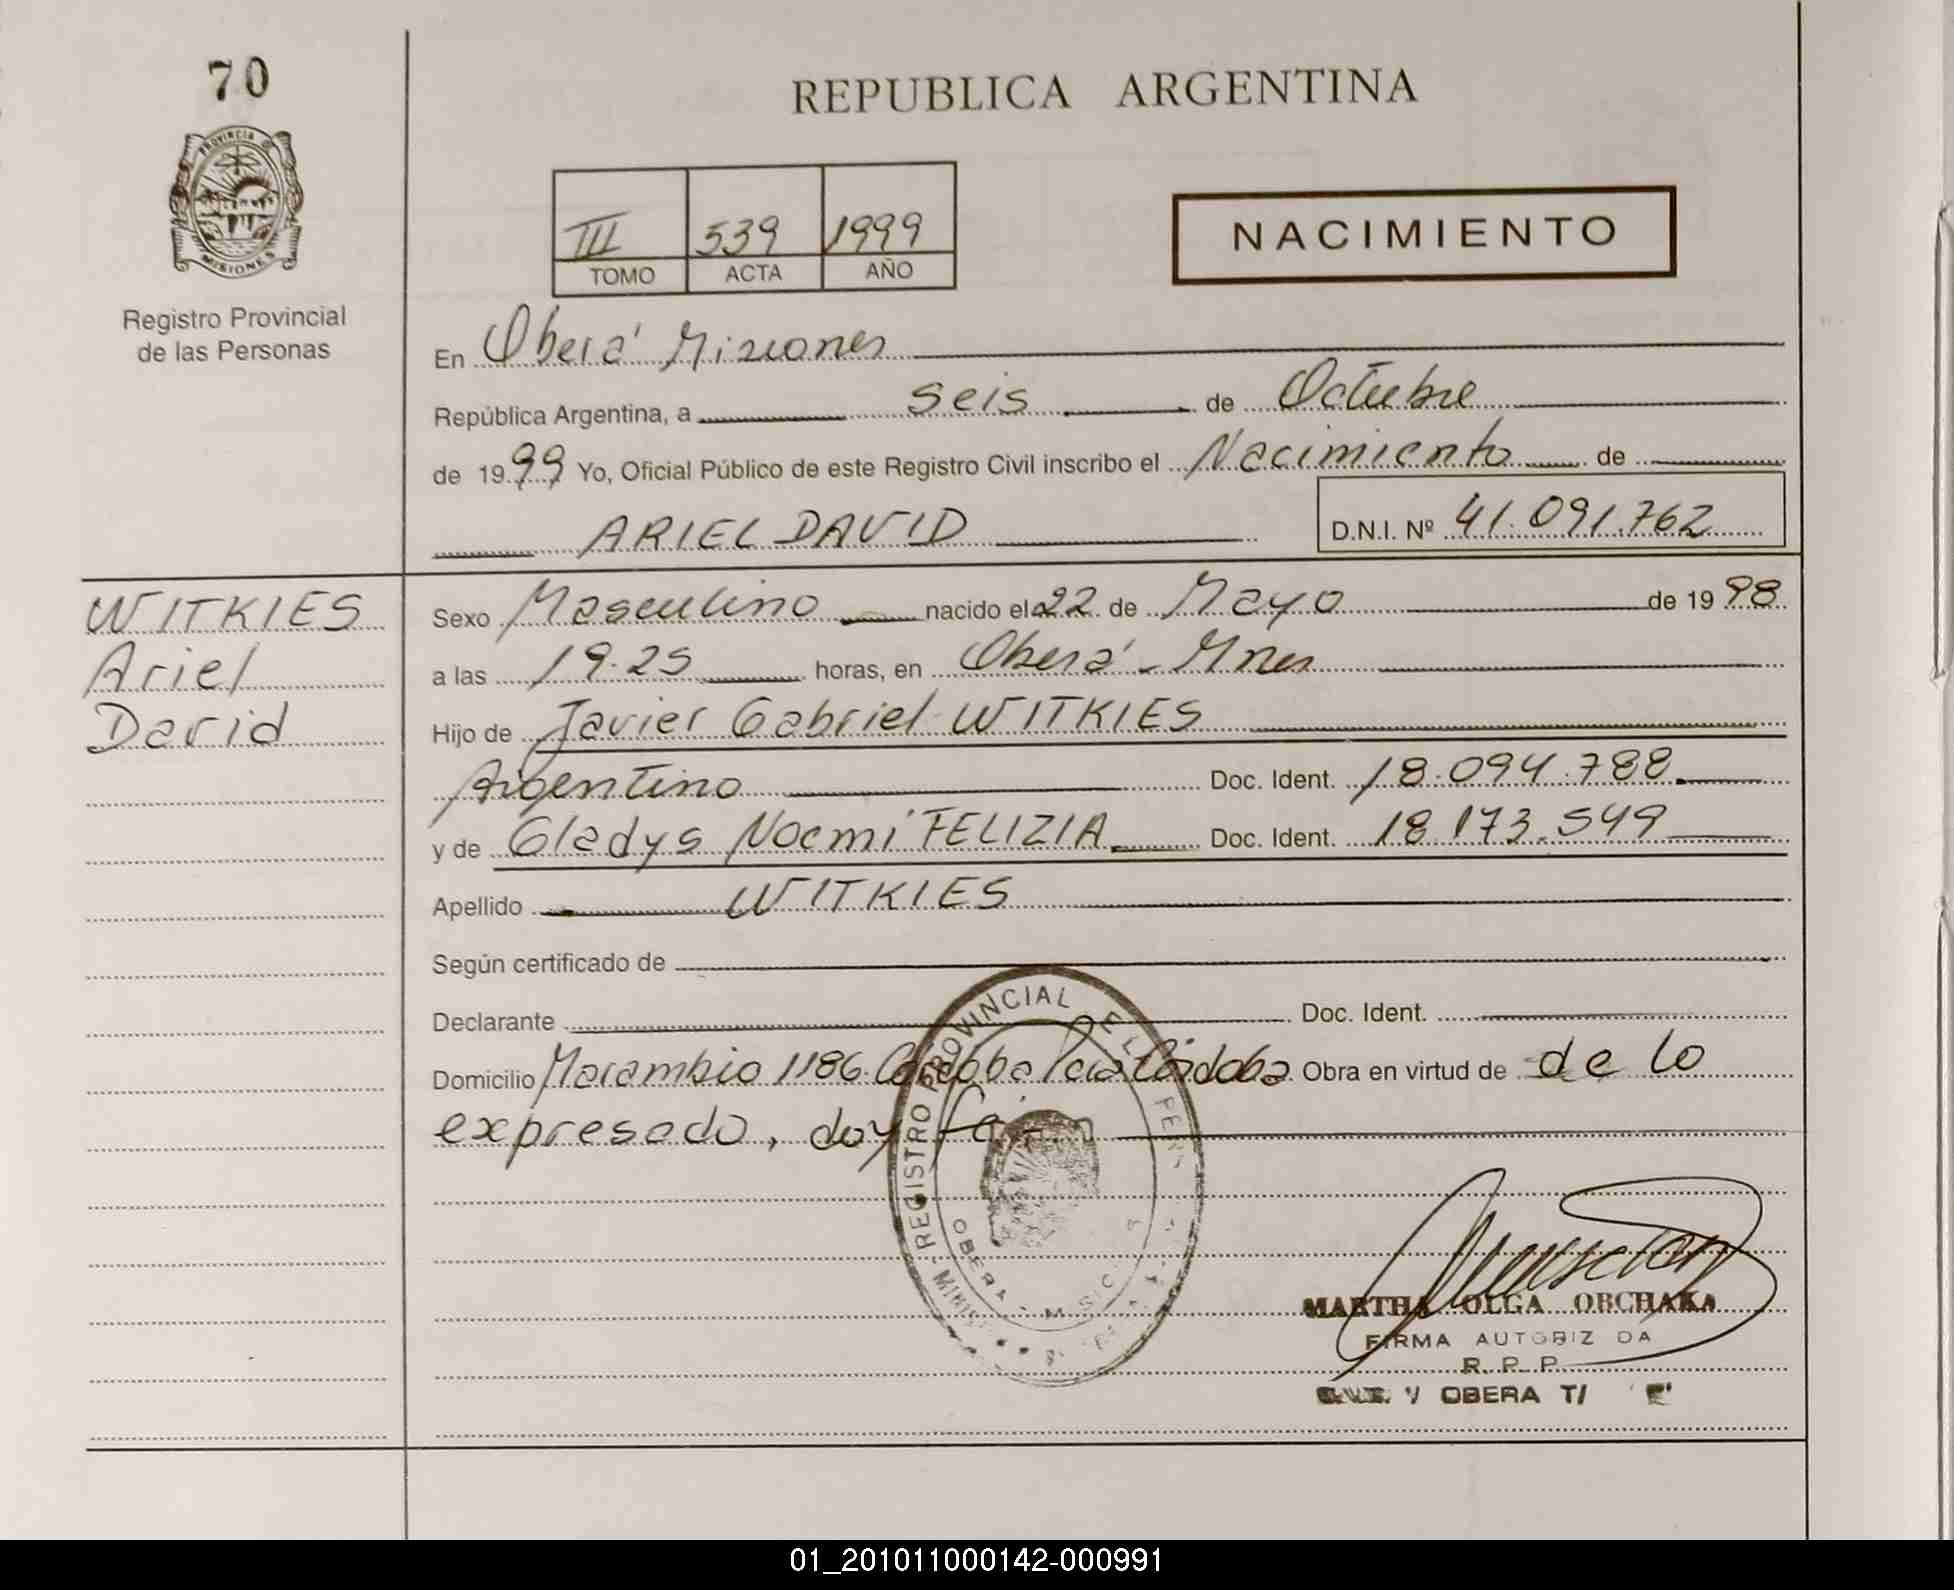 70
PROVINCIA DE
MISIONES
Registro Provincial
de las Personas
REPUBLICA ARGENTINA
III 539 1999
TOMO ACTA AÑO
NACIMIENTO
En Oberá Misiones
República Argentina, a seis de Octubre
de 1999 Yo, Oficial Público de este Registro Civil inscribo el Nacimiento de
ARIEL DAVID D.N.I. Nº 41.091.762
WITKIES
Ariel
David
Sexo Masculino nacido el 22 de Mayo de 1998
a las 19.25 horas, en Oberá - Mnes
Hijo de Javier Gabriel WITKIES
Argentino Doc. Ident. 18.094.788
y de Gladys Noemi FELIZIA Doc. Ident. 18.173.549
Apellido WITKIES
Según certificado de
Declarante Doc. Ident.
Domicilio Marambio 1186. Córdoba Pcia Córdoba Obra en virtud de de lo
expresado, doy fé
REGISTRO PROVINCIAL DE LAS PERSONAS
OBERA - MISIONES
MARTHA OLGA OBCHAKA
FIRMA AUTORIZ DA
R. P. P.
OBERA
01_201011000142-000991